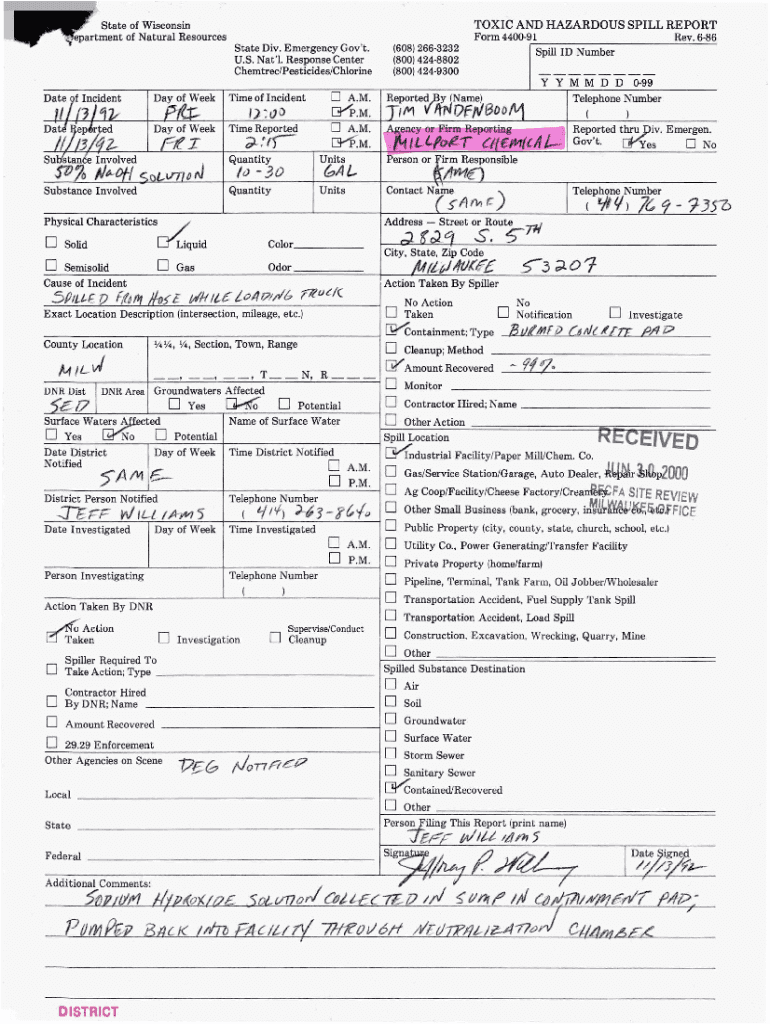 State of Wisconsin
Department of Natural Resources
TOXIC AND HAZARDOUS SPILL REPORT
Form 4400-91 Rev. 6-86
State Div. Emergency Gov't. (608) 266-3232
U.S. Nat'l. Response Center (800) 424-8802
Chemtrec/Pesticides/Chlorine (800) 424-9300
Spill ID Number
Y Y M M D D 0-99
Date of Incident Day of Week Time of Incident ☐ A.M. Reported By (Name) Telephone Number
11/13/92 FRI 12:00 ☑ P.M. JIM VANDENBOOM ( )
Date Reported Day of Week Time Reported ☐ A.M. Agency or Firm Reporting Reported thru Div. Emergen.
11/13/92 FRI 2:15 ☑ P.M. MILLPORT CHEMICAL Gov't. ☑ Yes ☐ No
Substance Involved Quantity Units Person or Firm Responsible
50% NaOH SOLUTION 10-30 GAL (SAME)
Substance Involved Quantity Units Contact Name Telephone Number
(SAME) (414) 769-7350
Physical Characteristics Address — Street or Route
☐ Solid ☑ Liquid Color 2829 S. 5TH
City, State, Zip Code
☐ Semisolid ☐ Gas Odor MILWAUKEE 53207
Cause of Incident Action Taken By Spiller
SPILLED FROM HOSE WHILE LOADING TRUCK
Exact Location Description (intersection, mileage, etc.)
☐ No Action Taken ☐ No Notification ☐ Investigate
☑ Containment; Type BURMED CONCRETE PAD
County Location ¼¼, ¼, Section, Town, Range
MILW
__, __, __, T __ N, R __
☐ Cleanup; Method
☑ Amount Recovered ~99%
DNR Dist DNR Area Groundwaters Affected ☐ Monitor
SED ☐ Yes ☑ No ☐ Potential ☐ Contractor Hired; Name
Surface Waters Affected Name of Surface Water ☐ Other Action
☐ Yes ☑ No ☐ Potential Spill Location
RECEIVED
JUN 30 2000
RECFA SITE REVIEW
MILWAUKEE OFFICE
Date District Notified Day of Week Time District Notified ☐ A.M. ☐ P.M.
SAME
☑ Industrial Facility/Paper Mill/Chem. Co.
☐ Gas/Service Station/Garage, Auto Dealer, Repair Shop
☐ Ag Coop/Facility/Cheese Factory/Creamery
District Person Notified Telephone Number
JEFF WILLIAMS (414) 263-8640
☐ Other Small Business (bank, grocery, insurance co., etc.)
Date Investigated Day of Week Time Investigated ☐ A.M. ☐ P.M.
☐ Public Property (city, county, state, church, school, etc.)
☐ Utility Co., Power Generating/Transfer Facility
☐ Private Property (home/farm)
Person Investigating Telephone Number
( )
☐ Pipeline, Terminal, Tank Farm, Oil Jobber/Wholesaler
☐ Transportation Accident, Fuel Supply Tank Spill
Action Taken By DNR
☐ Transportation Accident, Load Spill
☑ No Action Taken ☐ Investigation ☐ Supervise/Conduct Cleanup
☐ Construction, Excavation, Wrecking, Quarry, Mine
☐ Other
☐ Spiller Required To Take Action; Type
Spilled Substance Destination
☐ Air
☐ Contractor Hired By DNR; Name
☐ Soil
☐ Amount Recovered
☐ Groundwater
☐ Surface Water
☐ 29.29 Enforcement
☐ Storm Sewer
Other Agencies on Scene DEG NOTIFIED
☐ Sanitary Sewer
Local
☑ Contained/Recovered
☐ Other
State
Person Filing This Report (print name)
JEFF WILLIAMS
Federal
Signature Date Signed
Jeffrey P. Will 11/13/92
Additional Comments:
SODIUM HYDROXIDE SOLUTION COLLECTED IN SUMP IN CONTAINMENT PAD;
PUMPED BACK INTO FACILITY THROUGH NEUTRALIZATION CHAMBER
DISTRICT